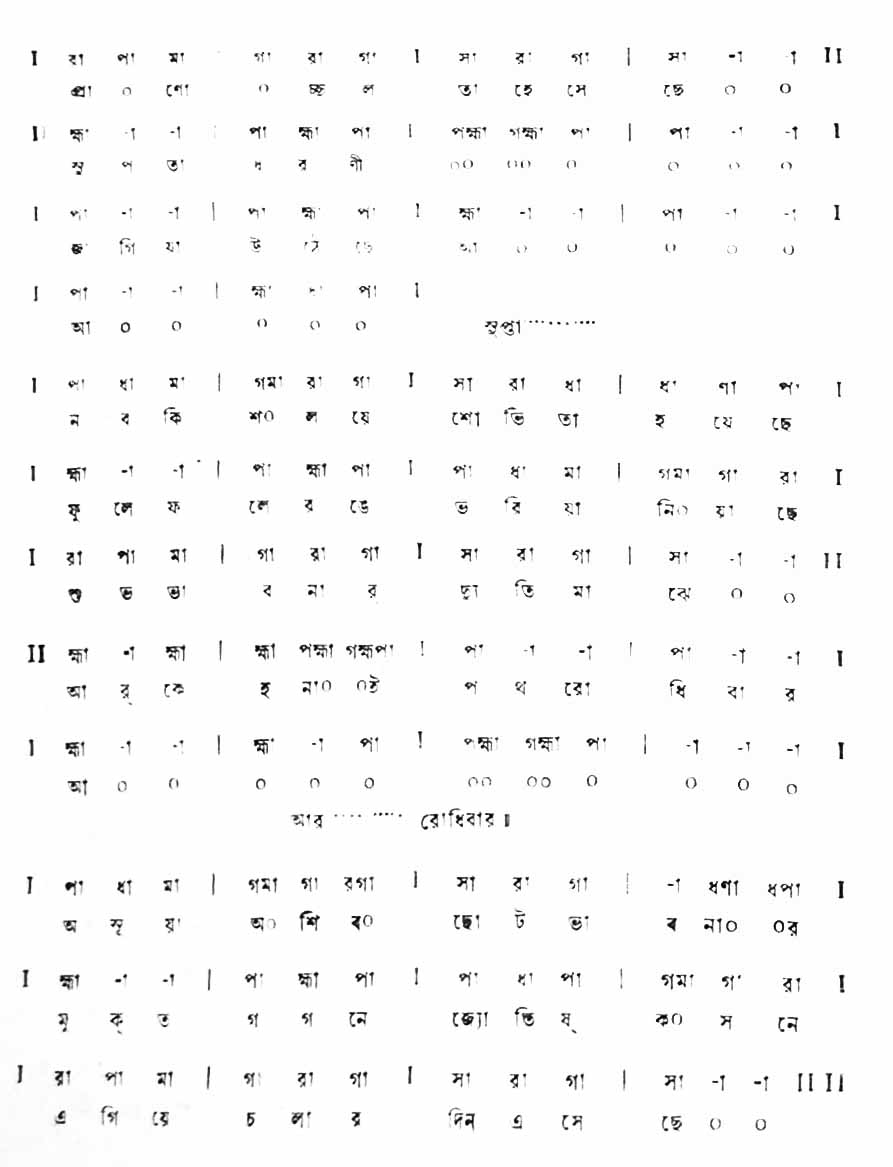 I রা পা মা | গা রা গা I সা রা গা | সা -া -া II
প্রা ০ ণো ০ চ্ছ ল তা হে সে ছে ০ ০
II হ্মা -া -া | পা হ্মা পা I পহ্মা গহ্মা পা | পা -া -া I
সু প তা ধ র ণী ০০ ০০ ০ ০ ০ ০
I পা -া -া | পা হ্মা পা I হ্মা -া -া | পা -া -া I
জা গি য়া উ ঠে ছে আ ০ ০ ০ ০ ০
I পা -া -া | হ্মা ধা পা I
আ ০ ০ ০ ০ ০ সুপ্তা··········
I পা ধা মা | গমা রা গা I সা রা ধা | ধা ণা পা I
ন ব কি শ০ ল য়ে শো ভি তা হ য়ে ছে
I হ্মা -া -া | পা হ্মা পা I পা ধা মা | গমা গা রা I
ফু লে ফ লে র ঙে ভ রি য়া নি০ য়া ছে
I রা পা মা | গা রা গা I সা রা গা | সা -া -া II
শু ভ ভা ব না র্ দ্যু তি মা ঝে ০ ০
II হ্মা -া হ্মা | হ্মা পহ্মা গহ্মপা I পা -া -া | পা -া -া I
আ র্ কে হ না০ ০ই প থ রো ধি বা র
I হ্মা -া -া | হ্মা -া পা I পহ্মা গহ্মা পা | -া -া -া I
আ ০ ০ ০ ০ ০ ০০ ০০ ০ ০ ০ ০
আর ···· ····· রোধিবার ॥
I পা ধা মা | গমা গা রগা I সা রা গা | -া ধণা ধপা I
অ সূ য়া অ০ শি ব০ ছো ট ভা ব না০ ০র
I হ্মা -া -া | পা হ্মা পা I পা ধা পা | গমা গা রা I
মু ক্ ত গ গ নে জ্যো তি ষ্ ক০ স নে
I রা পা মা | গা রা গা I সা রা গা | সা -া -া II II
এ গি য়ে চ লা র দিন এ সে ছে ০ ০